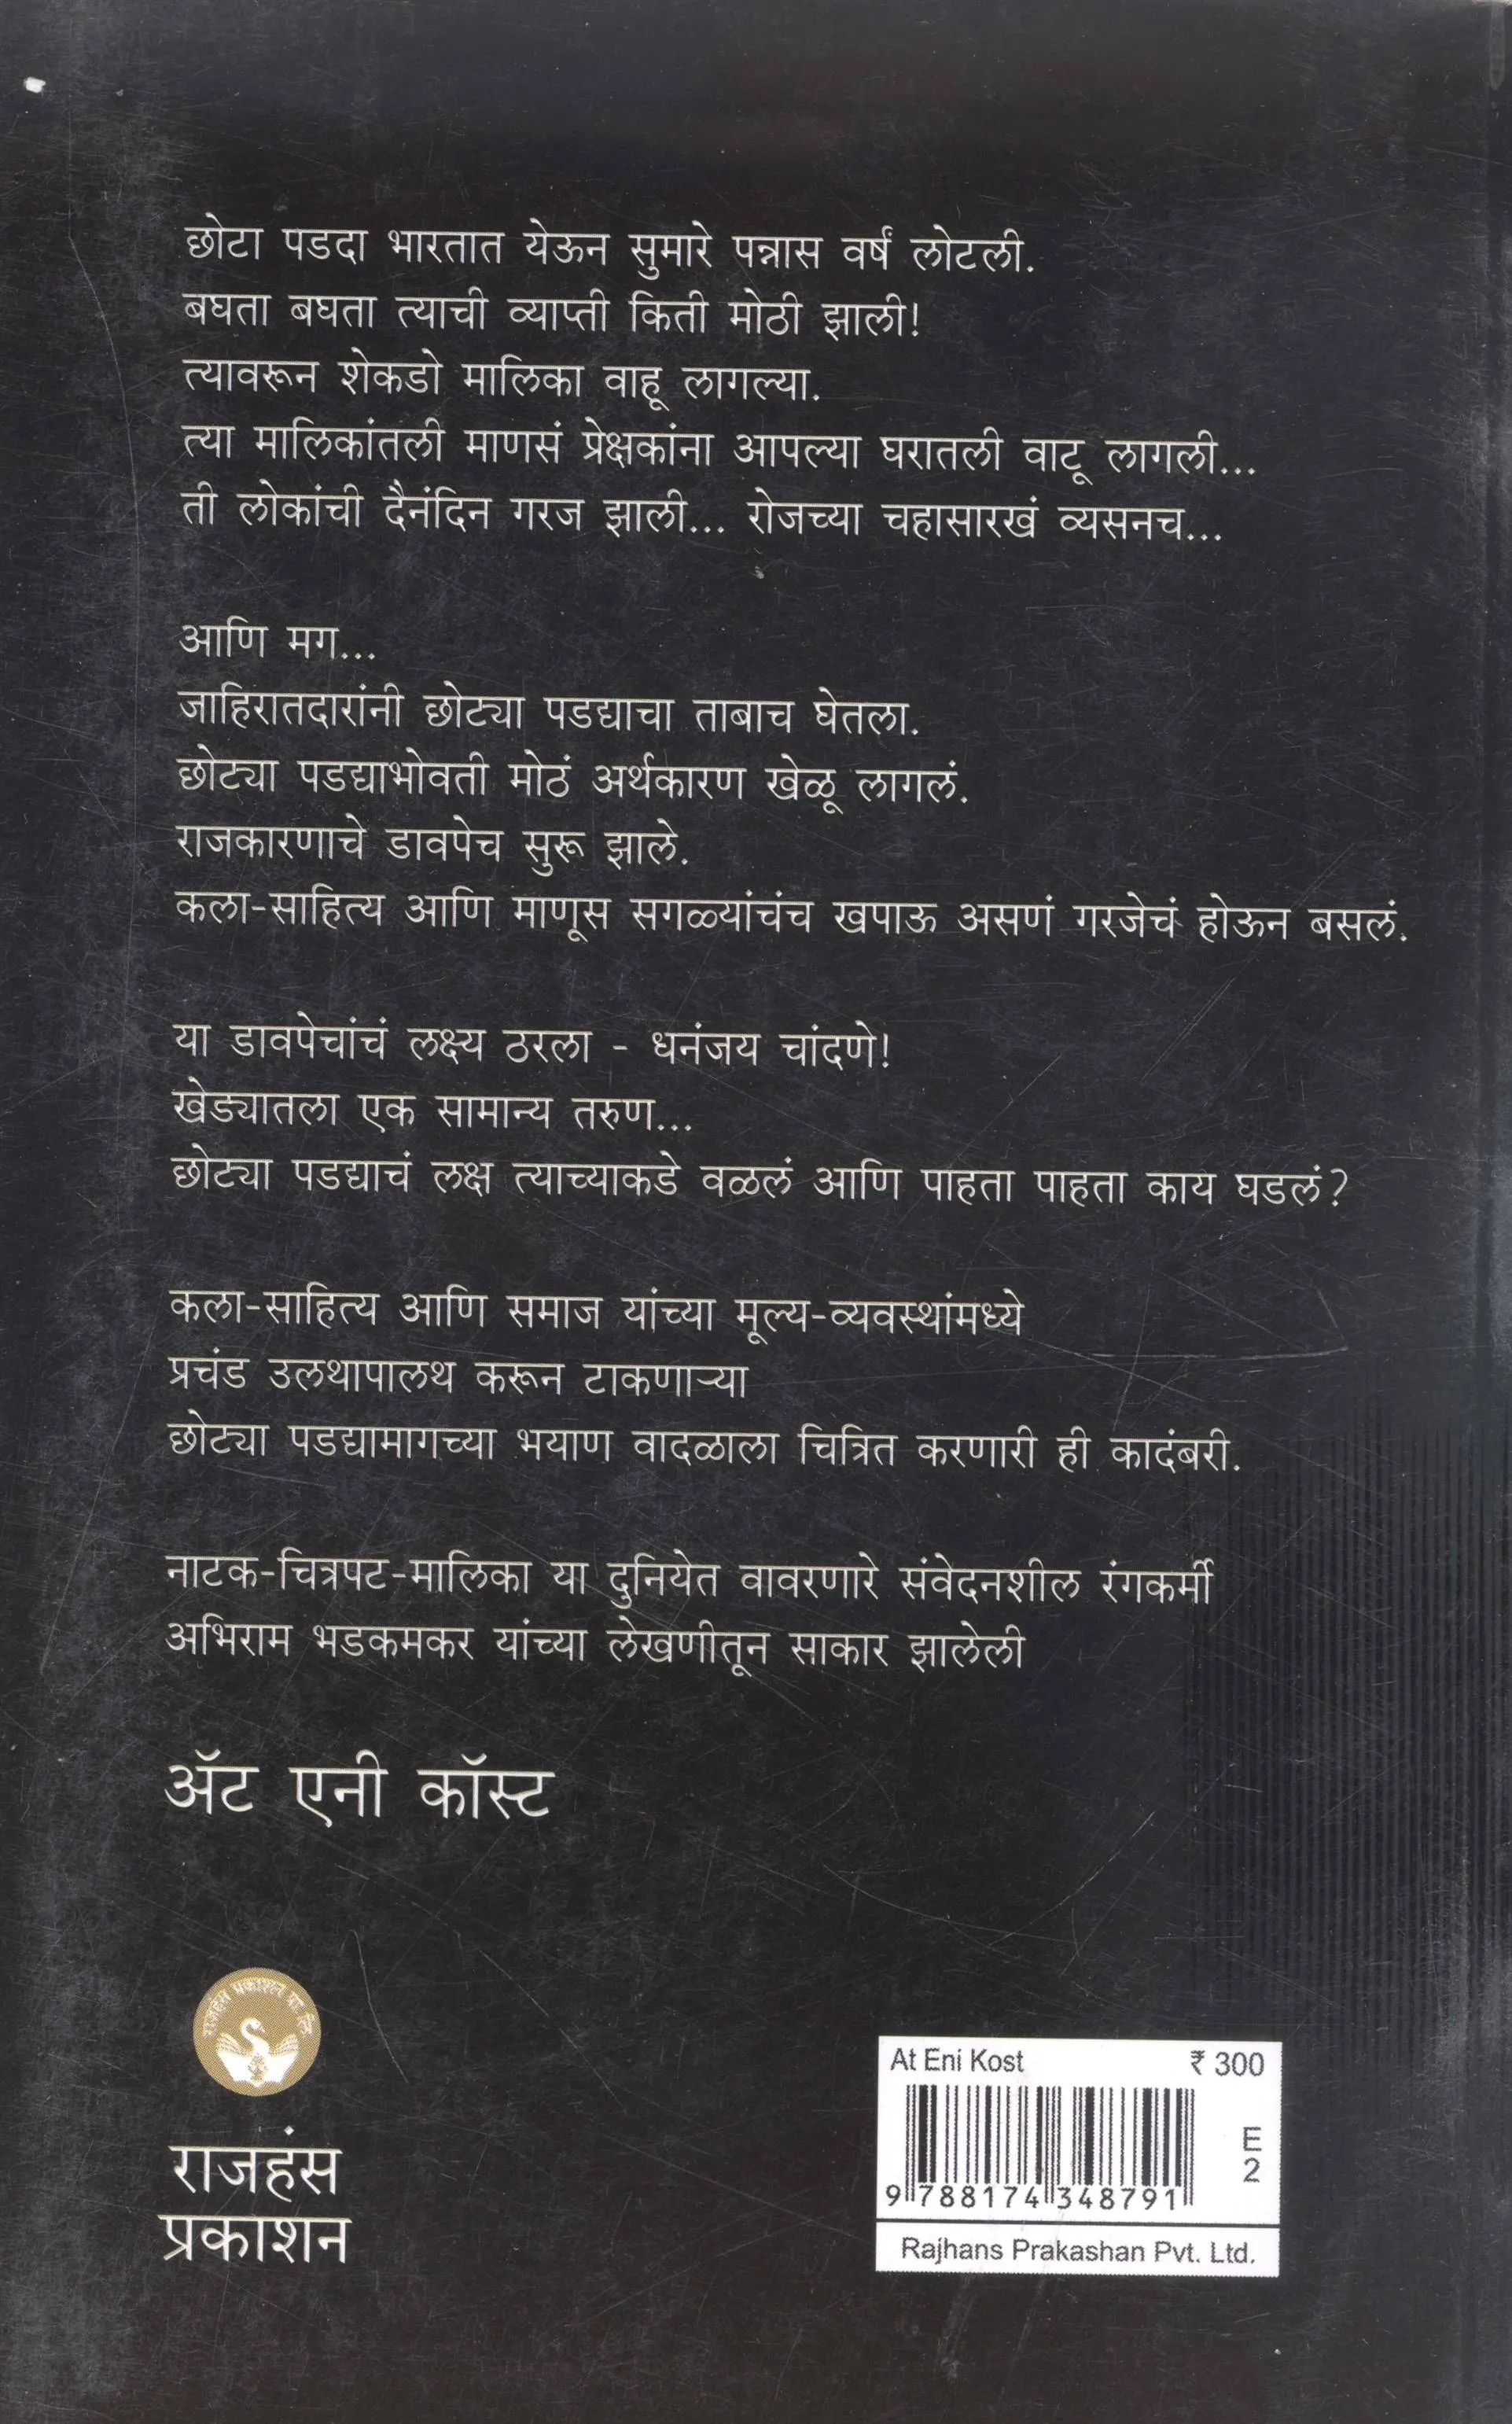 छोटा पडदा भारतात येऊन सुमारे पन्नास वर्षं लोटली.
बघता बघता त्याची व्याप्ती किती मोठी झाली!
त्यावरून शेकडो मालिका वाहू लागल्या.
त्या मालिकांतली माणसं प्रेक्षकांना आपल्या घरातली वाटू लागली...
ती लोकांची दैनंदिन गरज झाली... रोजच्या चहासारखं व्यसनच...
आणि मग...
जाहिरातदारांनी छोट्या पडद्याचा ताबाच घेतला.
छोट्या पडद्याभोवती मोठं अर्थकारण खेळू लागलं.
राजकारणाचे डावपेच सुरू झाले.
कला-साहित्य आणि माणूस सगळ्यांचंच खपाऊ असणं गरजेचं होऊन बसलं.
या डावपेचांचं लक्ष्य ठरला - धनंजय चांदणे!
खेड्यातला एक सामान्य तरुण...
छोट्या पडद्याचं लक्ष त्याच्याकडे वळलं आणि पाहता पाहता काय घडलं?
कला-साहित्य आणि समाज यांच्या मूल्य-व्यवस्थांमध्ये
प्रचंड उलथापालथ करून टाकणाऱ्या
छोट्या पडद्यामागच्या भयाण वादळाला चित्रित करणारी ही कादंबरी.
नाटक-चित्रपट-मालिका या दुनियेत वावरणारे संवेदनशील रंगकर्मी
अभिराम भडकमकर यांच्या लेखणीतून साकार झालेली
ॲट एनी कॉस्ट
राजहंस प्रकाशन प्रा. लि.
राजहंस
प्रकाशन
At Eni Kost ₹ 300
E
2
9 788174 348791
Rajhans Prakashan Pvt. Ltd.